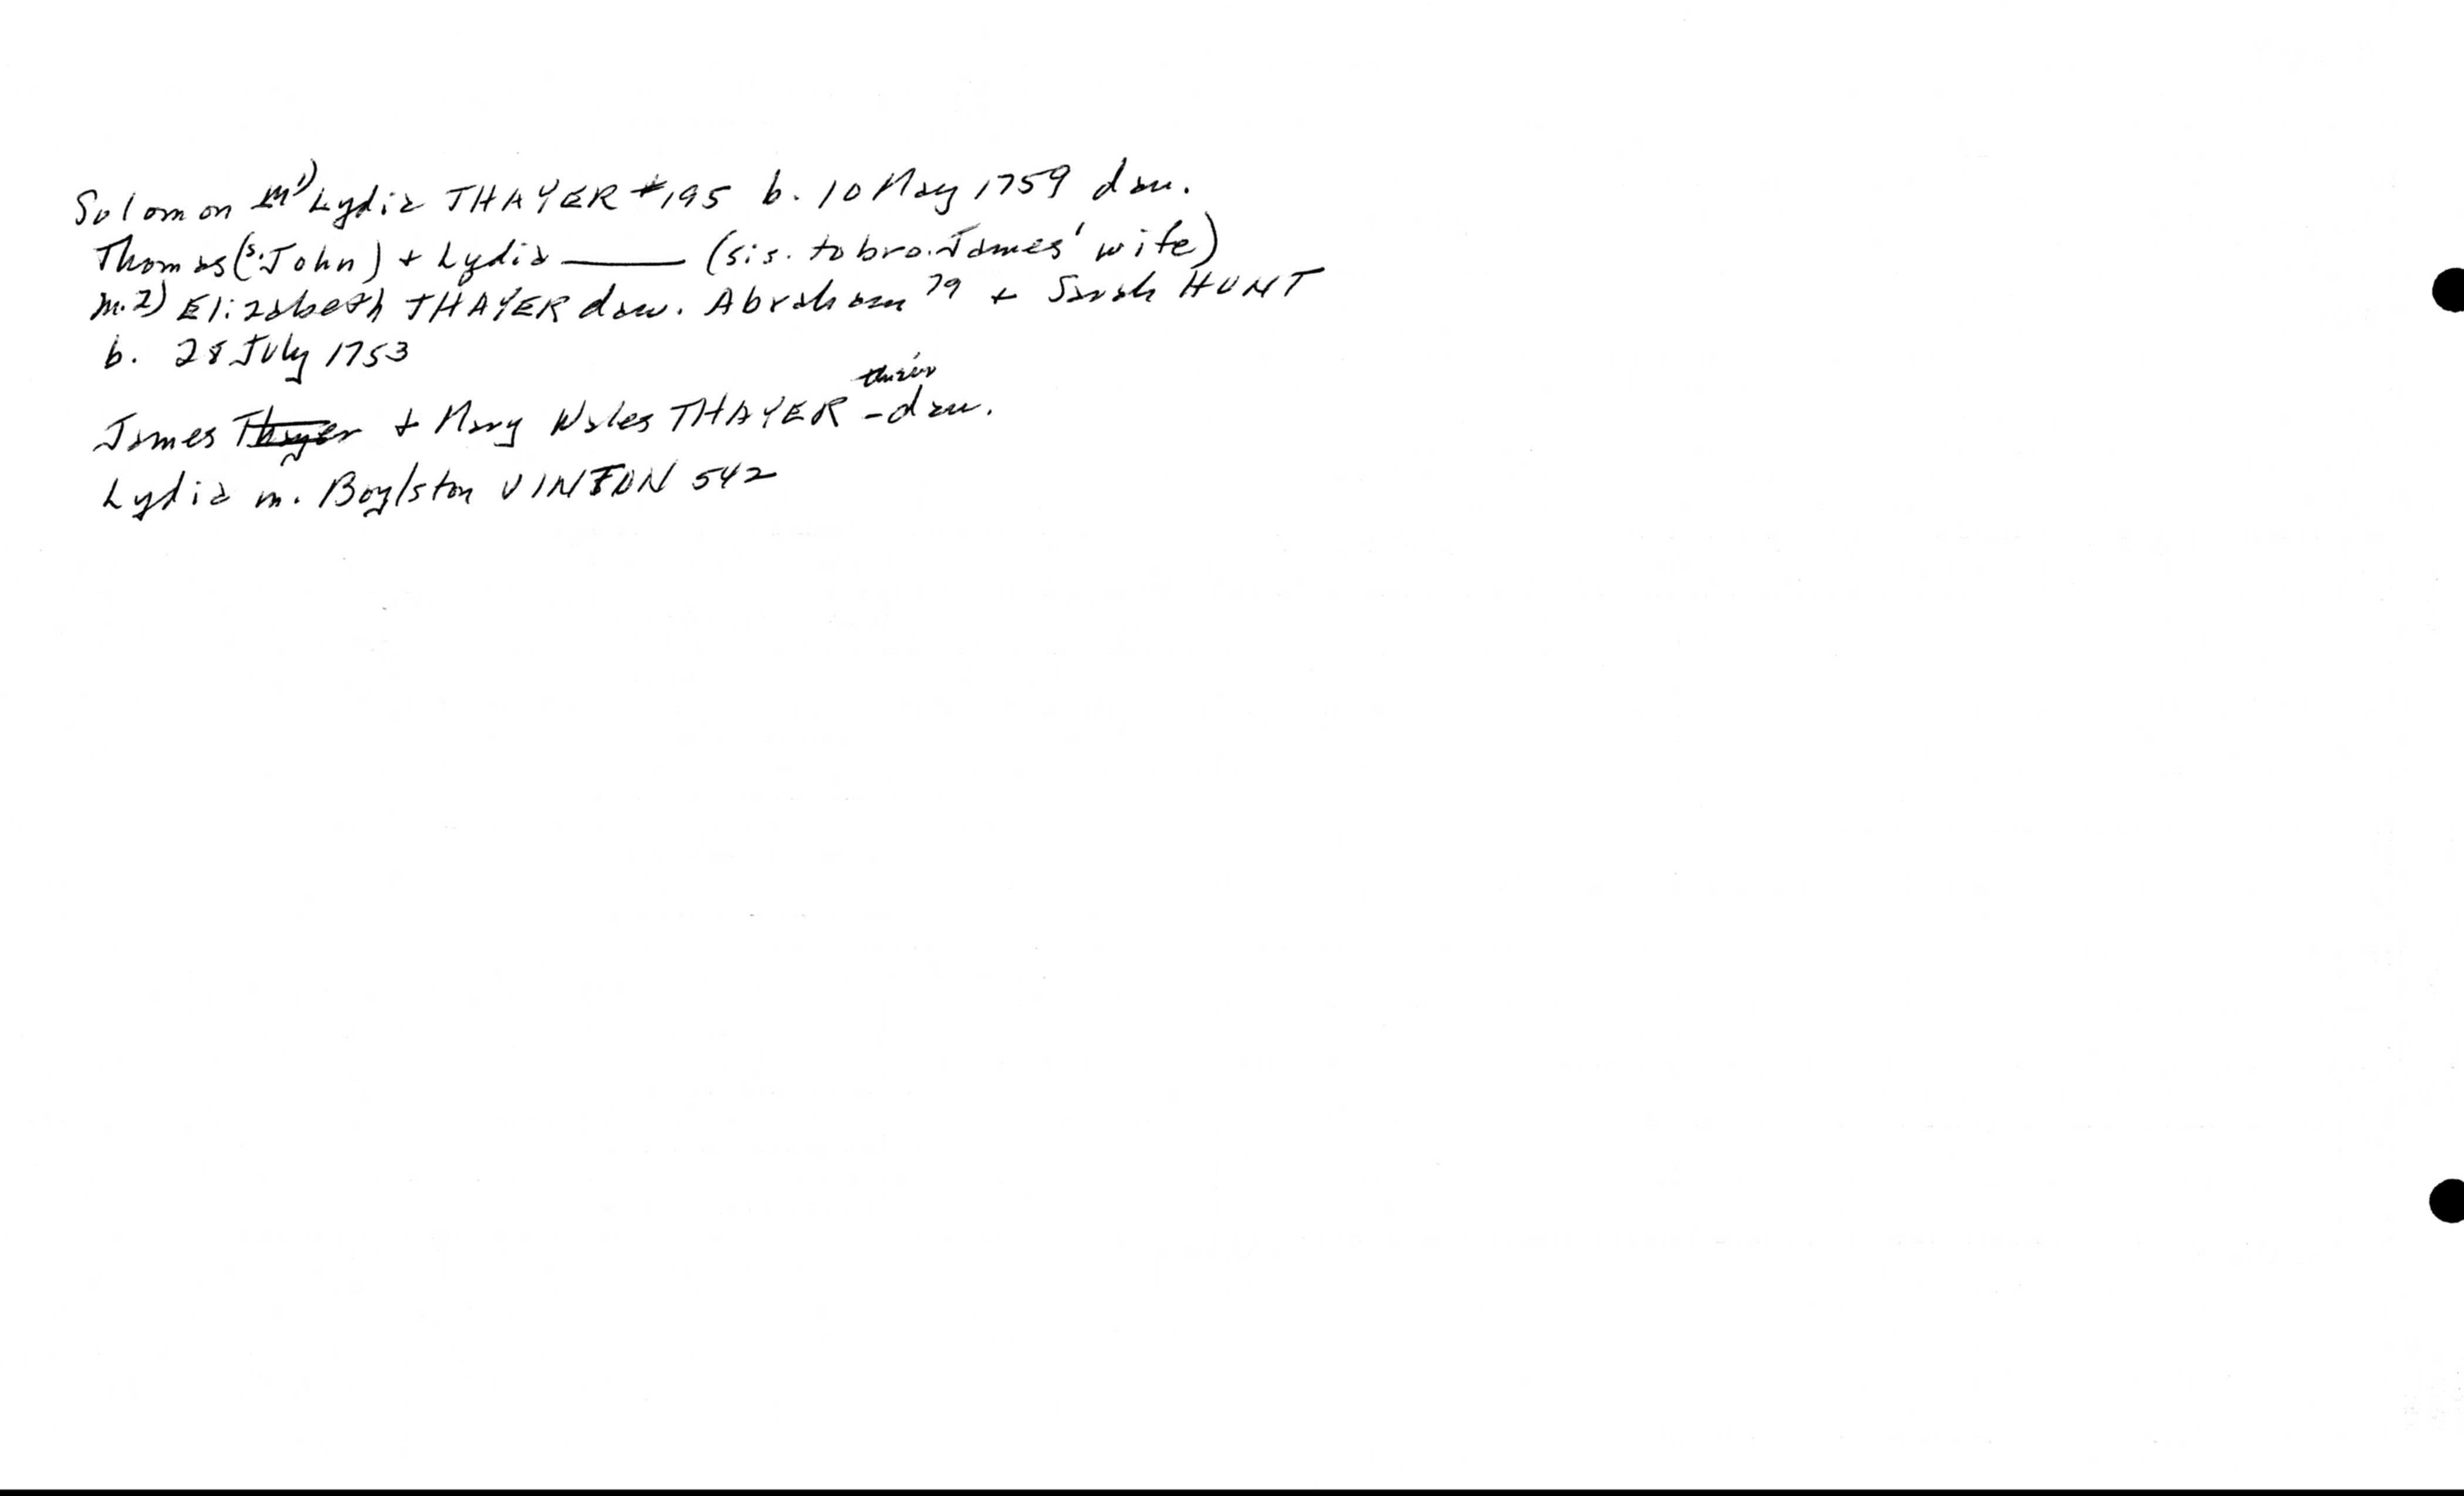 Solomon m 1) Lydia THAYER #195 b. 10 May 1759 dau.
Thomas (s. John) + Lydia ______ (sis. to bro. James' wife)
m. 2) Elizabeth THAYER dau. Abraham 79 + Sarah HUNT
b. 28 July 1753
James Thayer + Mary Wales THAYER - their dau.
Lydia m. Boylston VINTON 542